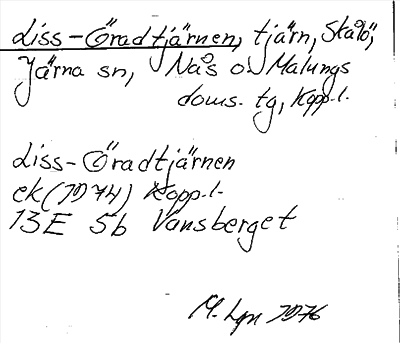 Liss-Öradtjärnen, tjärn, Skålö,
Järna sn, Nås o. Malungs
doms. tg, Kopp.l.
Liss-Öradtjärnen
ek (1974) Kopp.l.
13E 5b Vansberget
M. Lgn 1976